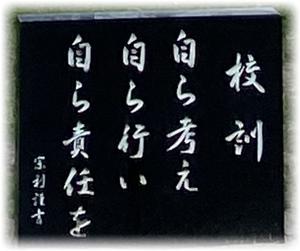 校訓
自ら考え
自ら行い
自ら責任を